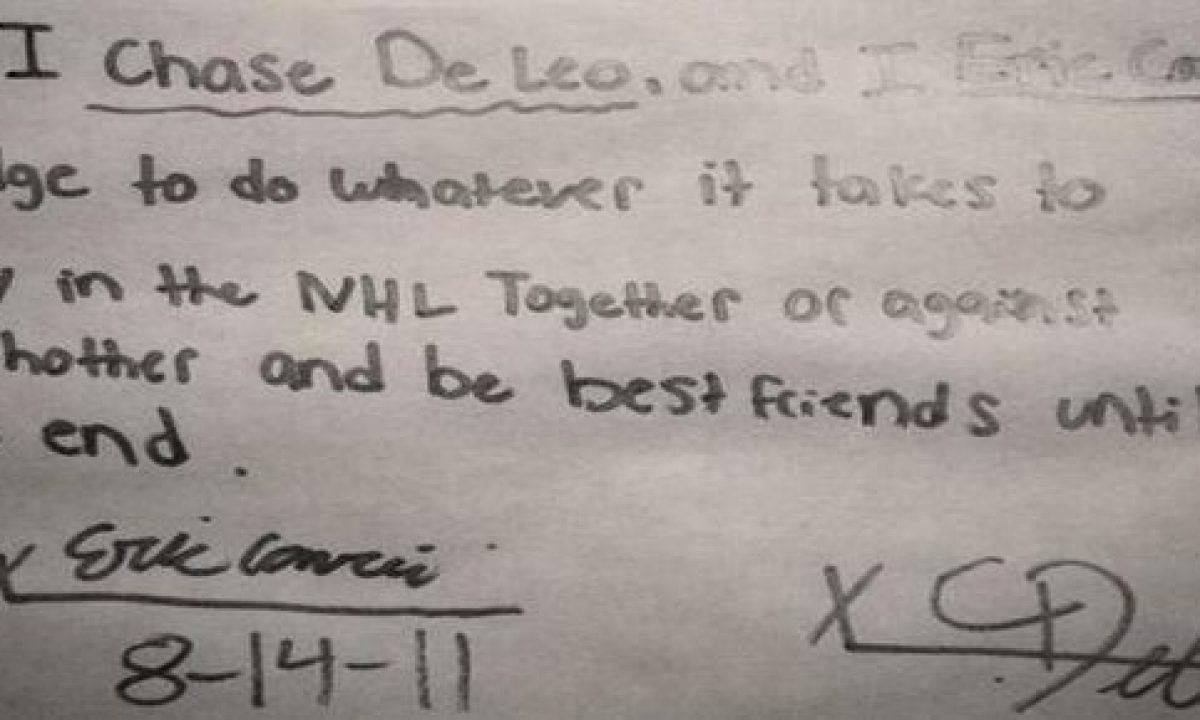 I Chase De Leo, and I Eric Co
dge to do whatever it takes to
y in the NHL Together or against
nother and be best friends until
end.
X Eric
X CDeL
8-14-11